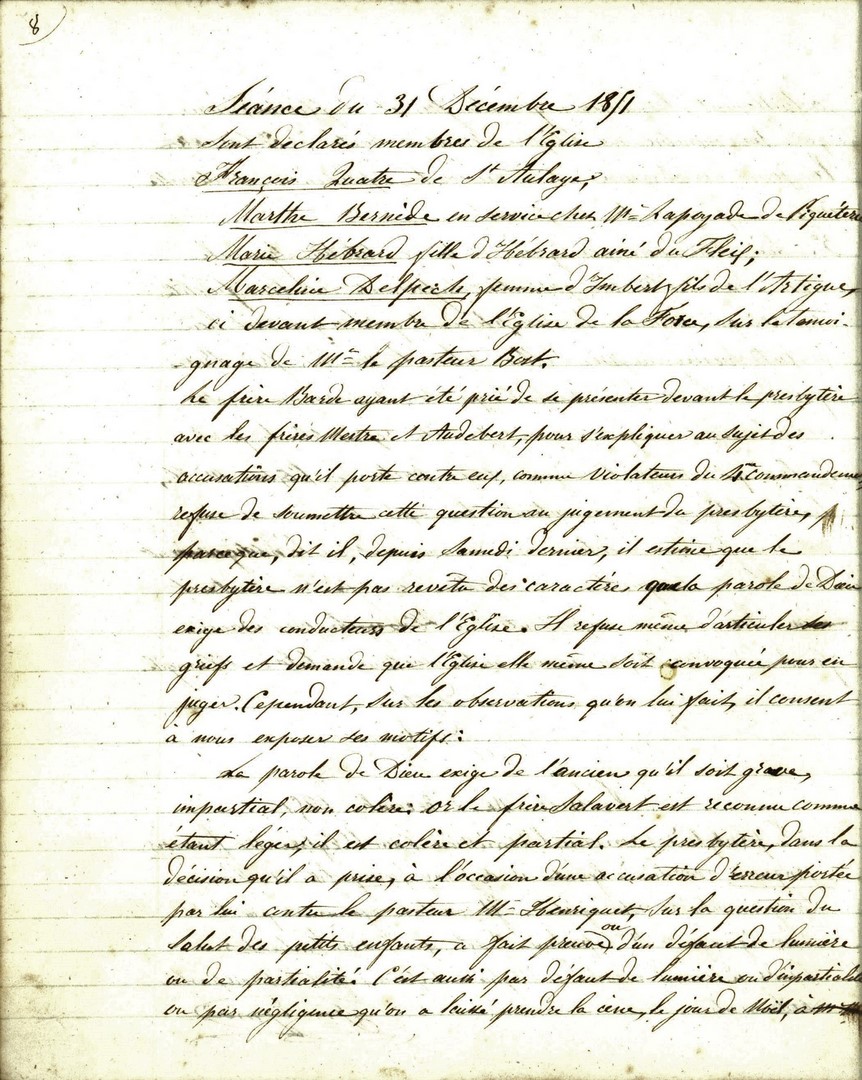 8
Séance du 31 Décembre 1851
Sont declarés membres de l'Eglise
François Quatre de St Aulaye,
Marthe Bernède en service chez Mr Lapoyade de
Marie Hébrard fille d'Hébrard ainé du Fleix;
Marceline Delpech, femme d'Imbert fils de l'Artigue,
ci devant membre de l'Eglise de la Force, sur le temoi-
-gnage de Mr le pasteur Bost.
Le frère Barde ayant été prié de se présenter devant le presbytère
avec les frères Mestre et Audebert, pour s'expliquer au sujet des
accusations qu'il porte contre eux, comme violateurs du 4me
refuse de soumettre cette question au jugement du presbytère,
parceque, dit il, depuis Samedi dernier, il estime que le
presbytère n'est pas revêtu des caractères que la parole de Dieu
exige des conducteurs de l'Eglise. Il refuse même d'articuler ses
griefs et demande que l'Eglise elle même soit convoquée pour en
juger. Cependant, sur les observations qu'on lui fait, il consent
à nous exposer ses motifs:
La parole de Dieu exige de l'ancien qu'il soit grave,
impartial, non colère; or le frère Salavert est reconnu comme
étant léger, il est colère et partial. Le presbytère, dans la
décision qu'il a prise, à l'occasion d'une accusation d'erreur portée
par lui contre le pasteur Mr Henriquet, sur la question du
Salut des petits enfants, a fait preuve ou d'un défaut de lumière
ou de partialité. C'est aussi par défaut de lumière ou d'impartialité
ou par négligence qu'on a laissé prendre la cène, le jour de Noël, à